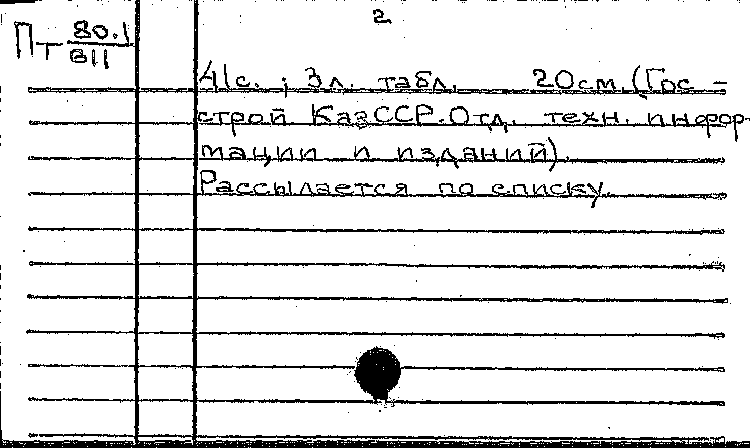 2
Пт 80.1
В11
41с. ; 3л. табл. 20см. (Гос-
строй КазССР. Отд. техн. инфор-
мации и изданий).
Рассылается по списку.